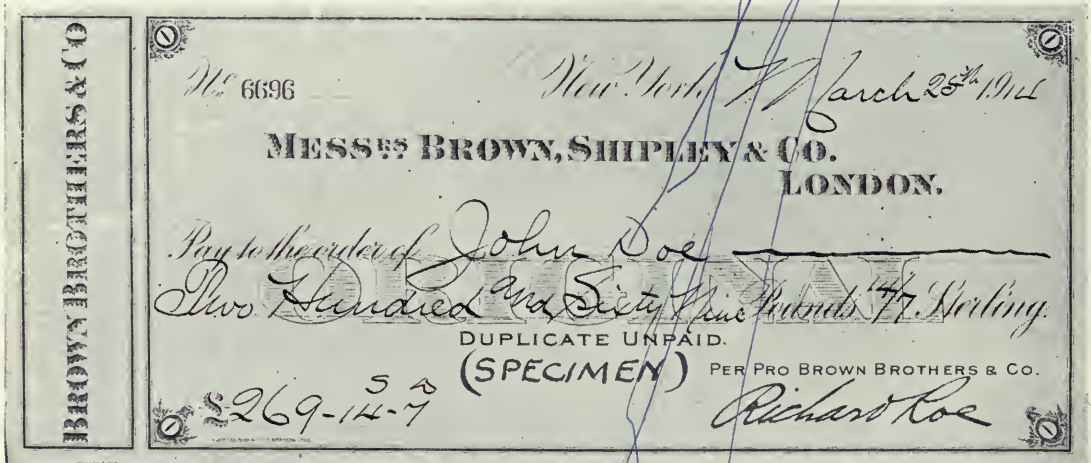 BROWN BROTHERS & CO
No. 6696
New York, March 25th 1914
MESSRS BROWN, SHIPLEY & CO.
LONDON.
Pay to the order of John Doe
ORIGINAL
Two Hundred and Sixty Nine Pounds 14/7 Sterling.
DUPLICATE UNPAID.
(SPECIMEN)
PER PRO BROWN BROTHERS & CO.
£269-14-7
Richard Roe